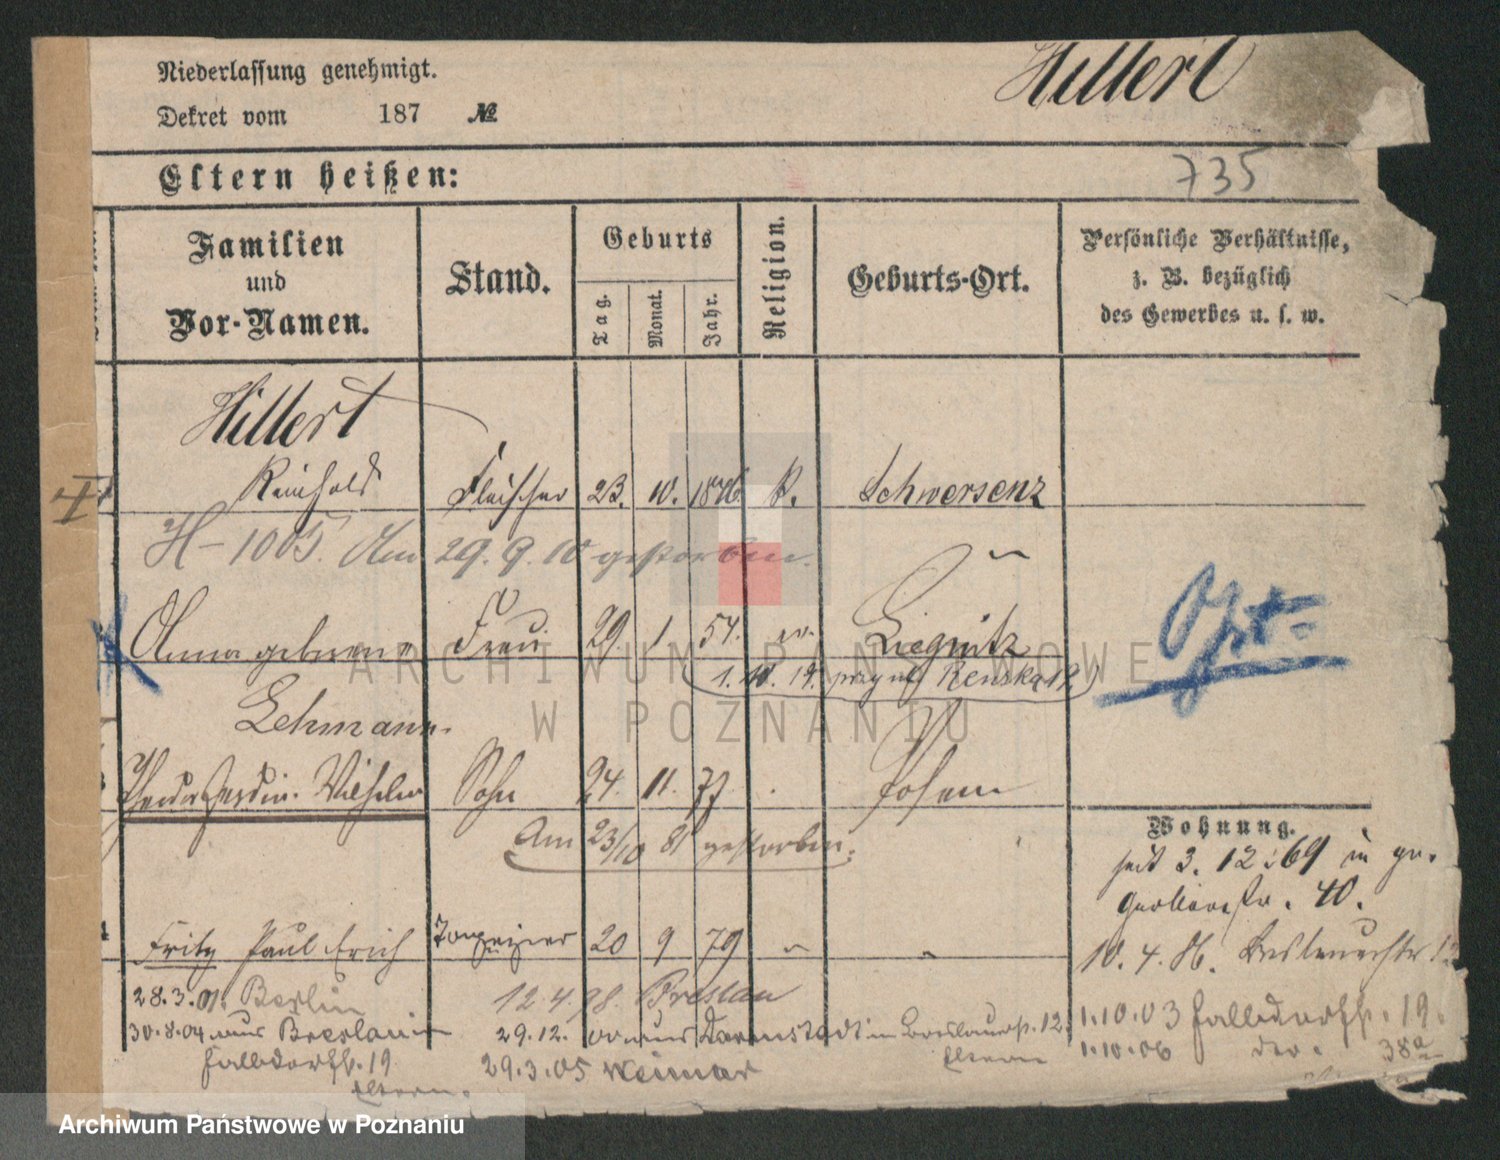 Niederlassung genehmigt.
Hillert
Dekret vom 187 №
735
Eltern heißen:
Familien und Vor-Namen.
Stand.
Geburts
Tag.
Monat.
Jahr.
Religion.
Geburts-Ort.
Persönliche Verhältnisse, z. B. bezüglich des Gewerbes u. s. w.
Hillert
Reinhold Fleischer 23. 10. 1846 k. Schwersenz
H-1005. Am 29. 9. 10 gestorben.
Anna geborene Frau 29. 1. 54. ev. Liegnitz
1. 10. 19.
Lehmann.
Wilhelm Sohn 24. 11. 77 Posen
Am 23/10 81 gestorben.
Wohnung.
seit 3. 12. 69 in gr.
40.
Fritz Paul Erich 20 9 79
10. 4. 86.
28.3.01. Berlin 12.4.98. Breslau
30.8.04 aus Breslau in 29.12. aus Darmstadt in 12. 1.10.03 19.
19 29.3.05 Weimar Eltern 1.10.06 38a
Eltern.
ARCHIWUM PAŃSTWOWE
W POZNANIU
Archiwum Państwowe w Poznaniu